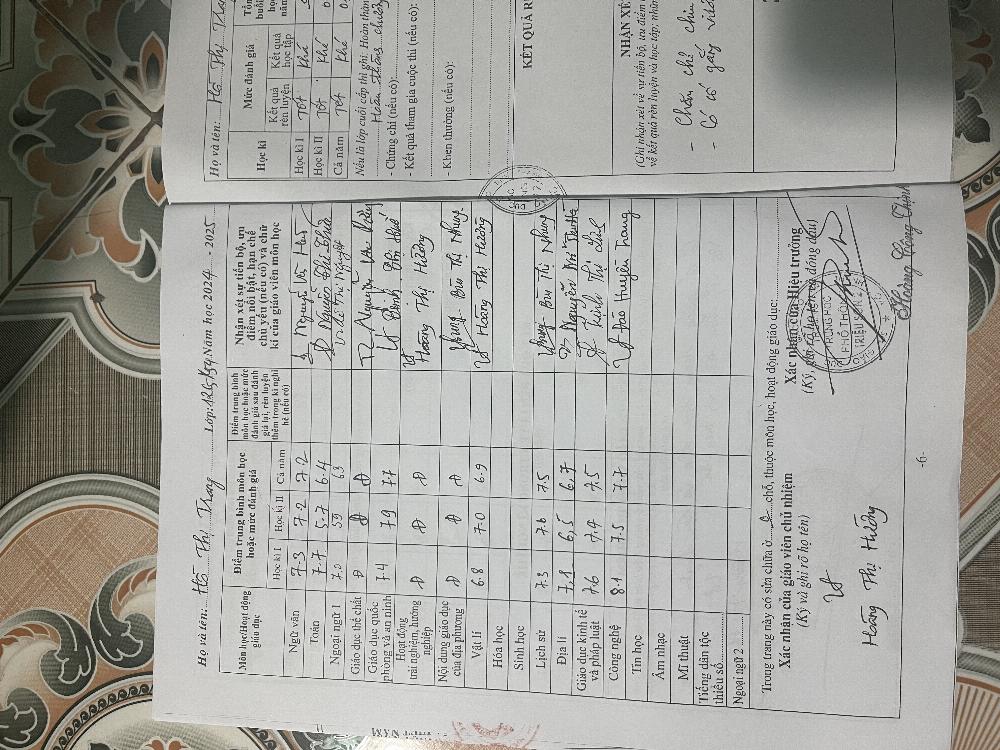 Họ và tên: Hà Thị Trang Lớp: Năm học 2024 - 2025
Môn học/Hoạt động giáo dục
Điểm trung bình môn học hoặc mức đánh giá
Học kì I Học kì II Cả năm
Điểm trung bình môn học hoặc mức đánh giá sau đánh giá lại, rèn luyện thêm trong kì nghỉ hè (nếu có)
Nhận xét sự tiến bộ, ưu điểm nổi bật, hạn chế chủ yếu (nếu có) và chữ kí của giáo viên môn học
Ngữ văn 7.3 7.2 7.2
Toán 7.7 5.7 6.4
Ngoại ngữ 1 7.0 5.9 6.3
Giáo dục thể chất Đ Đ Đ
Giáo dục quốc phòng và an ninh 7.4 7.9 7.7
Hoạt động trải nghiệm, hướng nghiệp Đ Đ Đ Hoàng Thị Hường
Nội dung giáo dục của địa phương Đ Đ Đ Bùi Thị Nhung
Vật lí 6.8 7.0 6.9 Hoàng Thị Hường
Hóa học
Sinh học
Lịch sử 7.3 7.6 7.5 Bùi Thị Nhung
Địa lí 7.1 6,5 6,7 Nguyễn
Giáo dục kinh tế và pháp luật 7.6 7.4 7.5
Công nghệ 8.1 7.5 7.7 Đào Huyền Trang
Tin học
Âm nhạc
Mĩ thuật
Tiếng dân tộc thiểu số
Ngoại ngữ 2
Trong trang này có sửa chữa ở chỗ, thuộc môn học, hoạt động giáo dục:
Xác nhận của giáo viên chủ nhiệm
(Ký và ghi rõ họ tên)
Hoàng Thị Hường
Xác nhận của Hiệu trưởng
(Ký, ghi rõ họ tên và đóng dấu)
TRƯỜNG
PHỔ THÔNG
-6-
Họ và tên: Hà Thị Trang
Học kì
Mức đánh giá
Kết quả rèn luyện
Kết quả học tập
Học kì I Tốt Khá
Học kì II Tốt Khá
Cả năm Tốt Khá
Nếu là lớp cuối cấp thì ghi: Hoàn thàn
Hoàn thành chương
- Chứng chỉ (nếu có):
- Kết quả tham gia cuộc thi (nếu có):
- Khen thưởng (nếu có):
KẾT QUẢ R
NHẬN XÉ
(Ghi nhận xét về sự tiến bộ, ưu điểm n
về kết quả rèn luyện và học tập, nhữn
- Chăm chỉ, chịu
- Có cố gắng